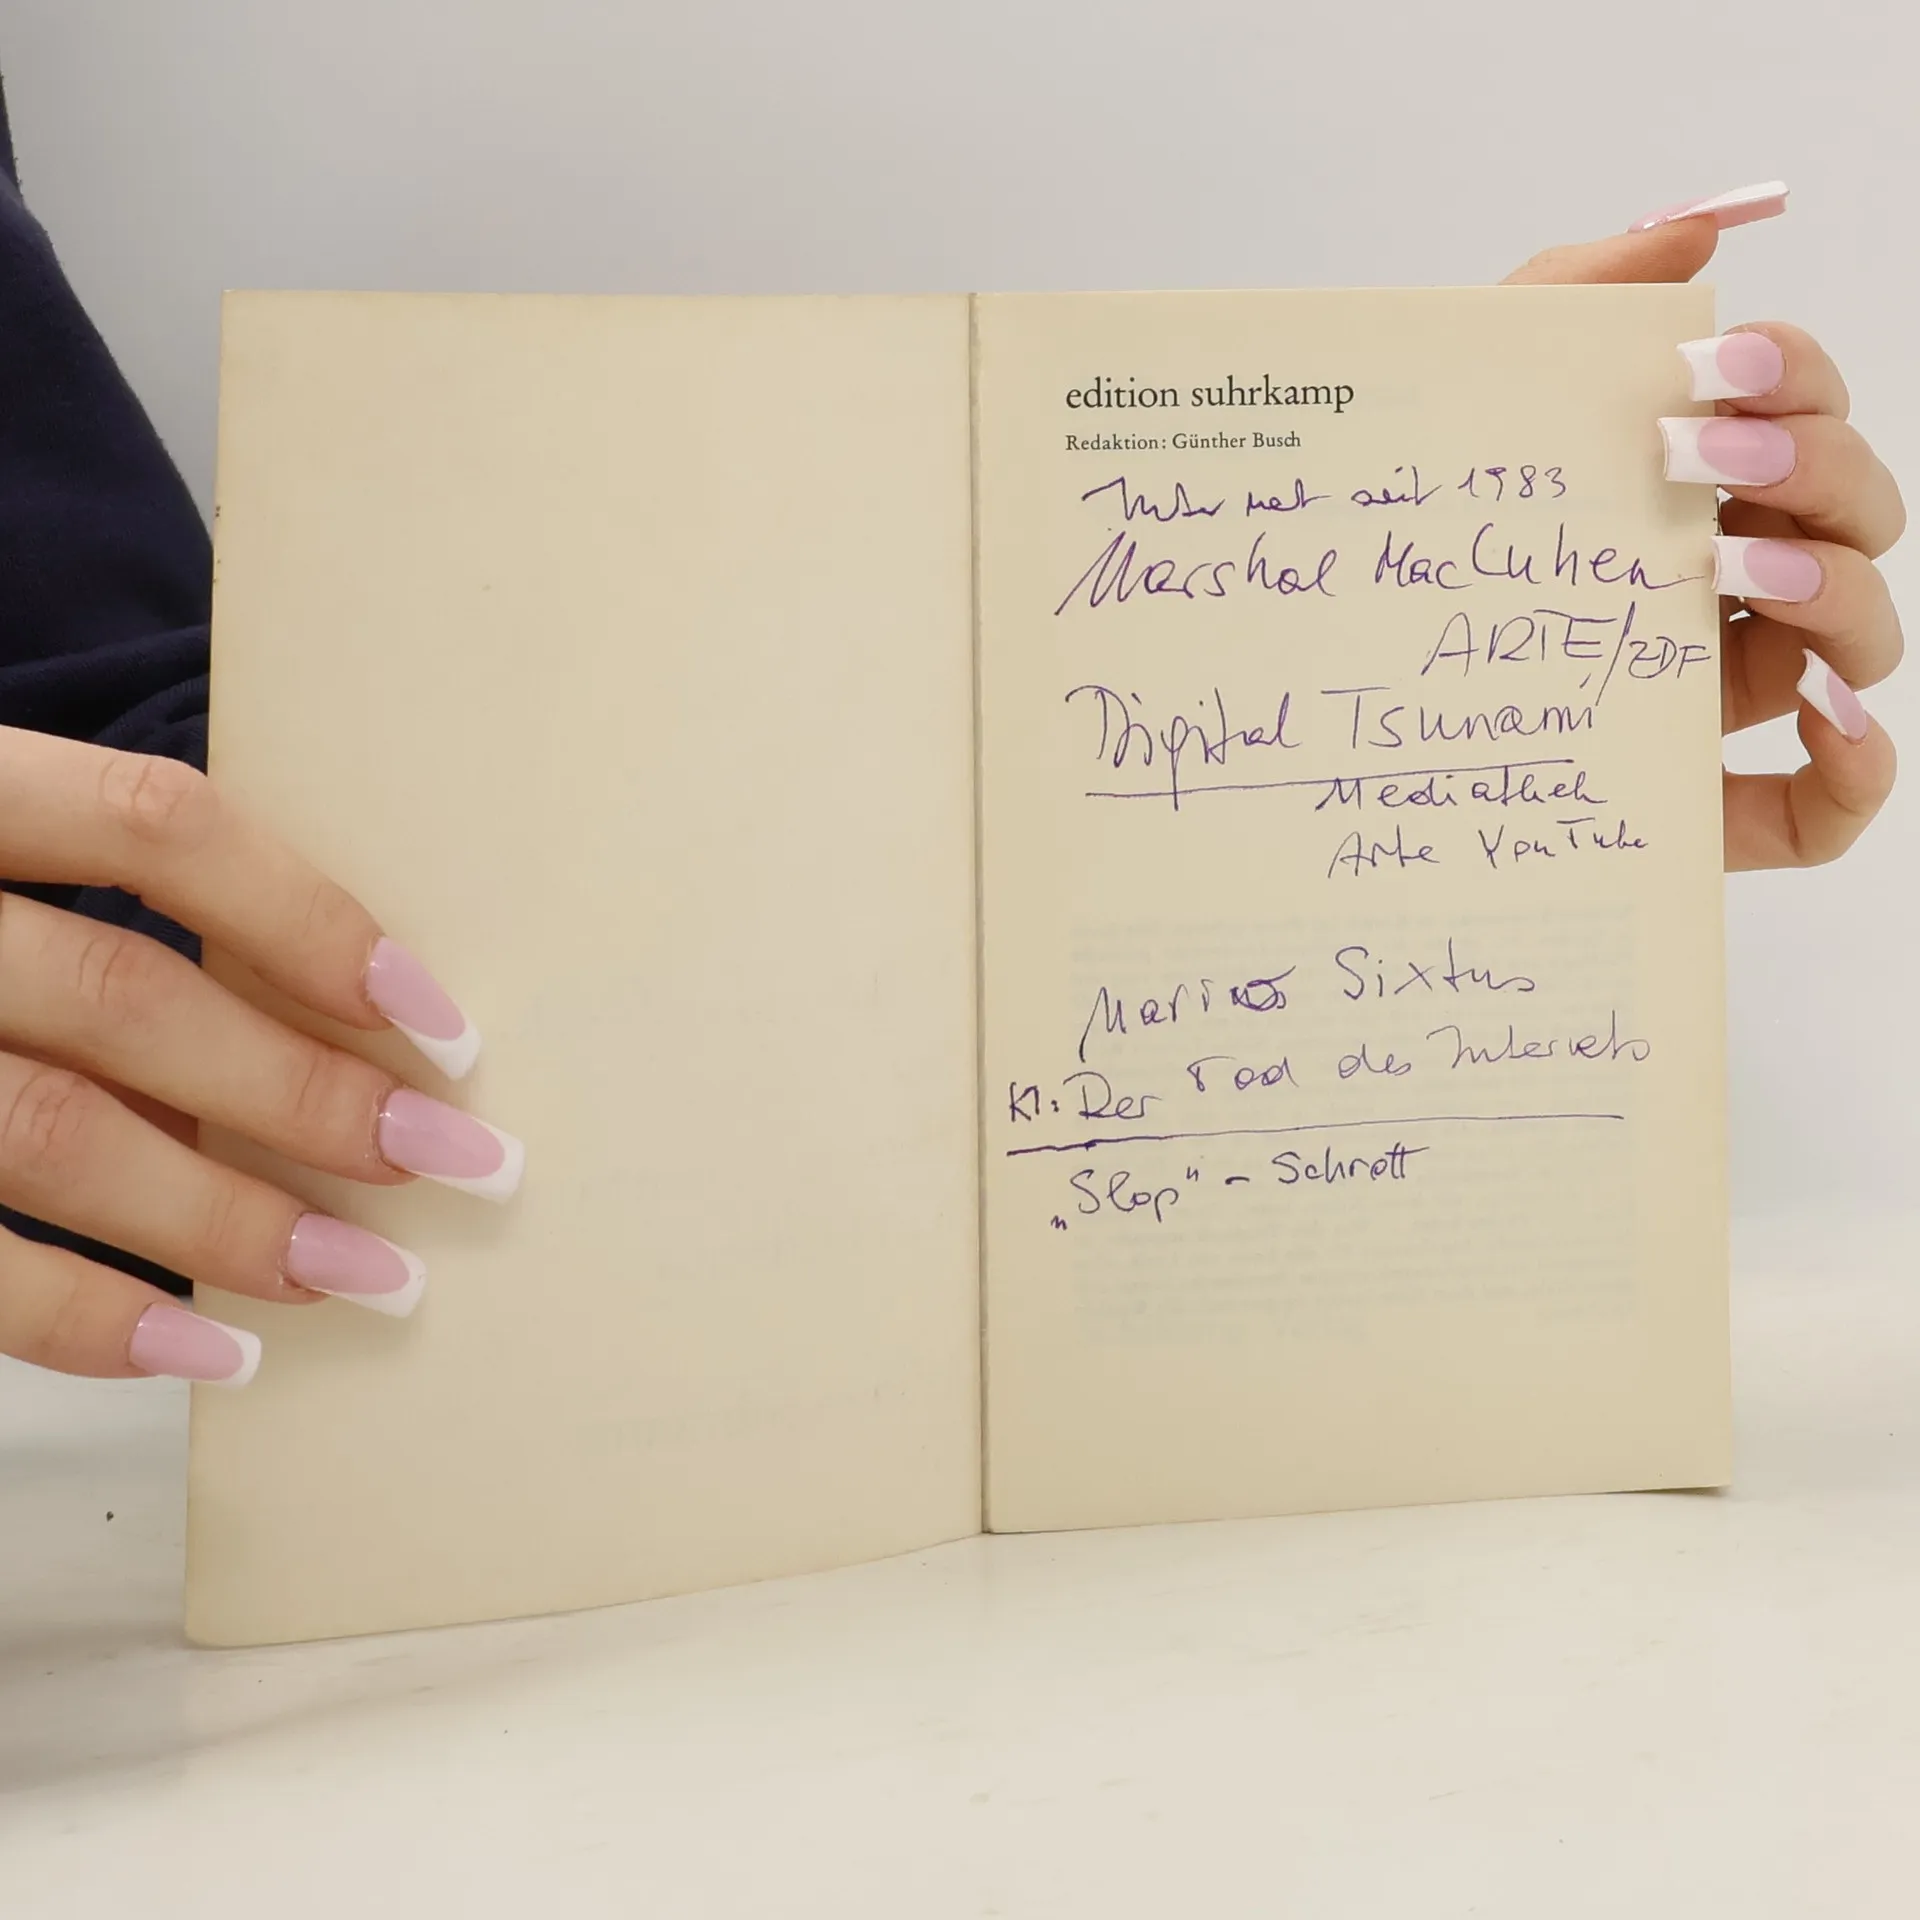 edition suhrkamp
Redaktion: Günther Busch
Internet seit 1983
Marshal MacLuhen
ARTE/ZDF
Digital Tsunami
Mediathek
Arte YouTube
Marius Sixtus
KI: Der Tod des Internets
„Slop“ - Schrott